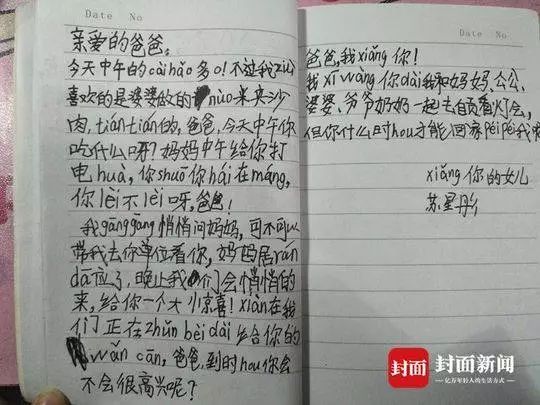 Date No
亲爱的爸爸,
今天中午的càihǎo多o!不过我zuì
喜欢的是婆婆做的nuò米夹沙
肉,tiántián的,爸爸,今天中午你
吃什么呀?妈妈中午给你打
电huà,你shuō你hái在máng,
你lèi不lèi呀,爸爸!
我gānggāng悄悄问妈妈,可不可以
带我去你单位看你,妈妈居rán
dā应了,晚上我们会悄悄的
来,给你一个大小惊喜!xiàn在我
们正在zhǔn bèi dài给你的
wǎn cān,爸爸,到时hou你会
不会很高兴呢?
Date No
爸爸,我xiǎng你!
我xīwàng你dài我和妈妈、公公、
婆婆、爷爷奶奶一起去自贡看灯会,
但你什么时hou才能回来péipéi我
xiǎng你的女儿
苏星彤
封面 封面新闻
亿万年轻人的生活方式